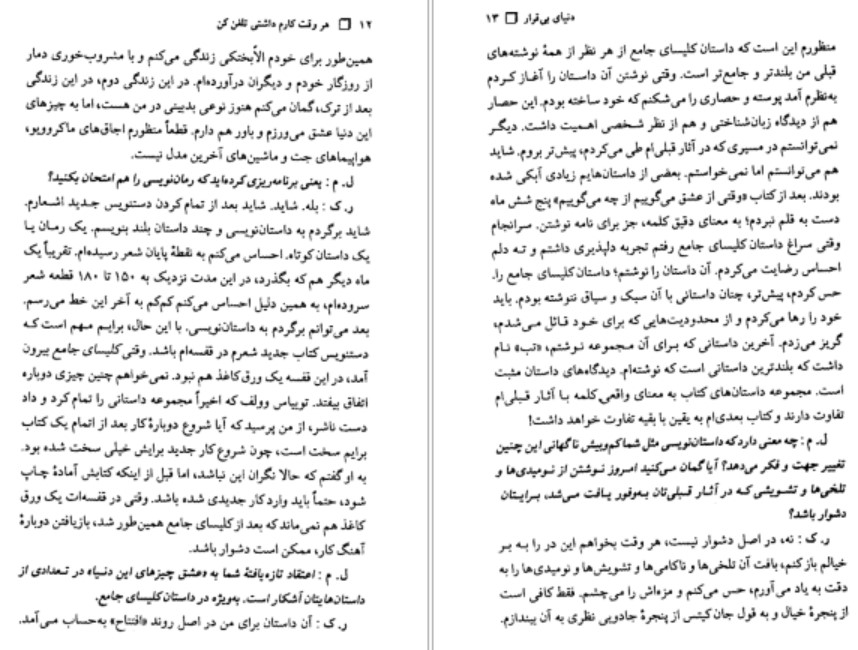 ۱۲ ❒ هر وقت کارم داشتی تلفن کن
همین‌طور برای خودم الاّبختکی زندگی می‌کنم و با مشروب‌خوری دمار
از روزگار خودم و دیگران درآورده‌ام. در این زندگی دوم، در این زندگی
بعد از ترک، گمان می‌کنم هنوز نوعی بدبینی در من هست، اما به چیزهای
این دنیا عشق می‌ورزم و باور هم دارم. قطعاً منظورم اجاق‌های ماکروویو،
هواپیماهای جت و ماشین‌های آخرین مدل نیست.
ل. م : یعنی برنامه‌ریزی کرده‌اید که رمان‌نویسی را هم امتحان بکنید؟
ر. ک : بله. شاید. شاید بعد از تمام کردن دستنویس جدید اشعارم.
شاید برگردم به داستان‌نویسی و چند داستان بلند بنویسم. یک رمان یا
یک داستان کوتاه. احساس می‌کنم به نقطهٔ پایان شعر رسیده‌ام. تقریباً یک
ماه دیگر هم که بگذرد، در این مدت نزدیک به ۱۵۰ تا ۱۸۰ قطعه شعر
سروده‌ام، به همین دلیل احساس می‌کنم کم‌کم به آخر این خط می‌رسم.
بعد می‌توانم برگردم به داستان‌نویسی. با این حال، برایم مهم است که
دستنویس کتاب جدید شعرم در قفسه‌ام باشد. وقتی کلیسای جامع بیرون
آمد، در این قفسه یک ورق کاغذ هم نبود. نمی‌خواهم چنین چیزی دوباره
اتفاق بیفتد. توبیاس وولف که اخیراً مجموعه داستانی را تمام کرد و داد
دست ناشر، از من پرسید که آیا شروع دوبارهٔ کار بعد از اتمام یک کتاب
برایم سخت است، چون شروع کار جدید برایش خیلی سخت شده بود.
به او گفتم که حالا نگران این نباشد، اما قبل از اینکه کتابش آمادهٔ چاپ
شود، حتماً باید وارد کار جدیدی شده باشد. وقتی در قفسه‌ات یک ورق
کاغذ هم نمی‌ماند که بعد از کلیسای جامع همین‌طور شد، بازیافتن دوبارهٔ
آهنگ کار، ممکن است دشوار باشد.
ل. م : اعتقاد تازه‌یافتهٔ شما به «عشق چیزهای این دنیا» در تعدادی از
داستان‌هایتان آشکار است. به‌ویژه در داستان کلیسای جامع.
ر. ک : آن داستان برای من در اصل روند «افتتاح» به‌حساب می‌آمد.
دنیای بی‌قرار ❒ ۱۳
منظورم این است که داستان کلیسای جامع از هر نظر از همهٔ نوشته‌های
قبلی من بلندتر و جامع‌تر است. وقتی نوشتن آن داستان را آغاز کردم
به‌نظرم آمد پوسته و حصاری را می‌شکنم که خود ساخته بودم. این حصار
هم از دیدگاه زبان‌شناختی و هم از نظر شخصی اهمیت داشت. دیگر
نمی‌توانستم در مسیری که در آثار قبلی‌ام طی می‌کردم، پیش‌تر بروم. شاید
هم می‌توانستم اما نمی‌خواستم. بعضی از داستان‌هایم زیادی آبکی شده
بودند. بعد از کتاب «وقتی از عشق می‌گوییم از چه می‌گوییم» پنج شش ماه
دست به قلم نبردم؛ به معنای دقیق کلمه، جز برای نامه نوشتن. سرانجام
وقتی سراغ داستان کلیسای جامع رفتم تجربه دلپذیری داشتم و ته دلم
احساس رضایت می‌کردم. آن داستان را نوشتم؛ داستان کلیسای جامع را.
حس کردم، پیش‌تر، چنان داستانی با آن سبک و سیاق ننوشته بودم. باید
خود را رها می‌کردم و از محدودیت‌هایی که برای خود قائل می‌شدم،
گریز می‌زدم. آخرین داستانی که برای آن مجموعه نوشتم، «تب» نام
داشت که بلندترین داستانی است که نوشته‌ام. دیدگاه‌های داستان مثبت
است. مجموعه داستان‌های کتاب به معنای واقعی کلمه با آثار قبلی‌ام
تفاوت دارند و کتاب بعدی‌ام به یقین با بقیه تفاوت خواهد داشت!
ل. م : چه معنی دارد که داستان‌نویسی مثل شما کم‌وبیش ناگهانی این چنین
تغییر جهت و فکر می‌دهد؟ آیا گمان می‌کنید امروز نوشتن از نومیدی‌ها و
تلخی‌ها و تشویشی که در آثار قبلی‌تان به‌وفور یافت می‌شد، برایتان
دشوار باشد؟
ر. ک : نه، در اصل دشوار نیست، هر وقت بخواهم این در را به بر
خیالم باز کنم، بافت آن تلخی‌ها و ناکامی‌ها و تشویش‌ها و نومیدی‌ها را به
دقت به یاد می‌آورم، حس می‌کنم و مزه‌اش را می‌چشم. فقط کافی است
از پنجرهٔ خیال و به قول جان کیتس از پنجرهٔ جادویی نظری به آن بیندازم.